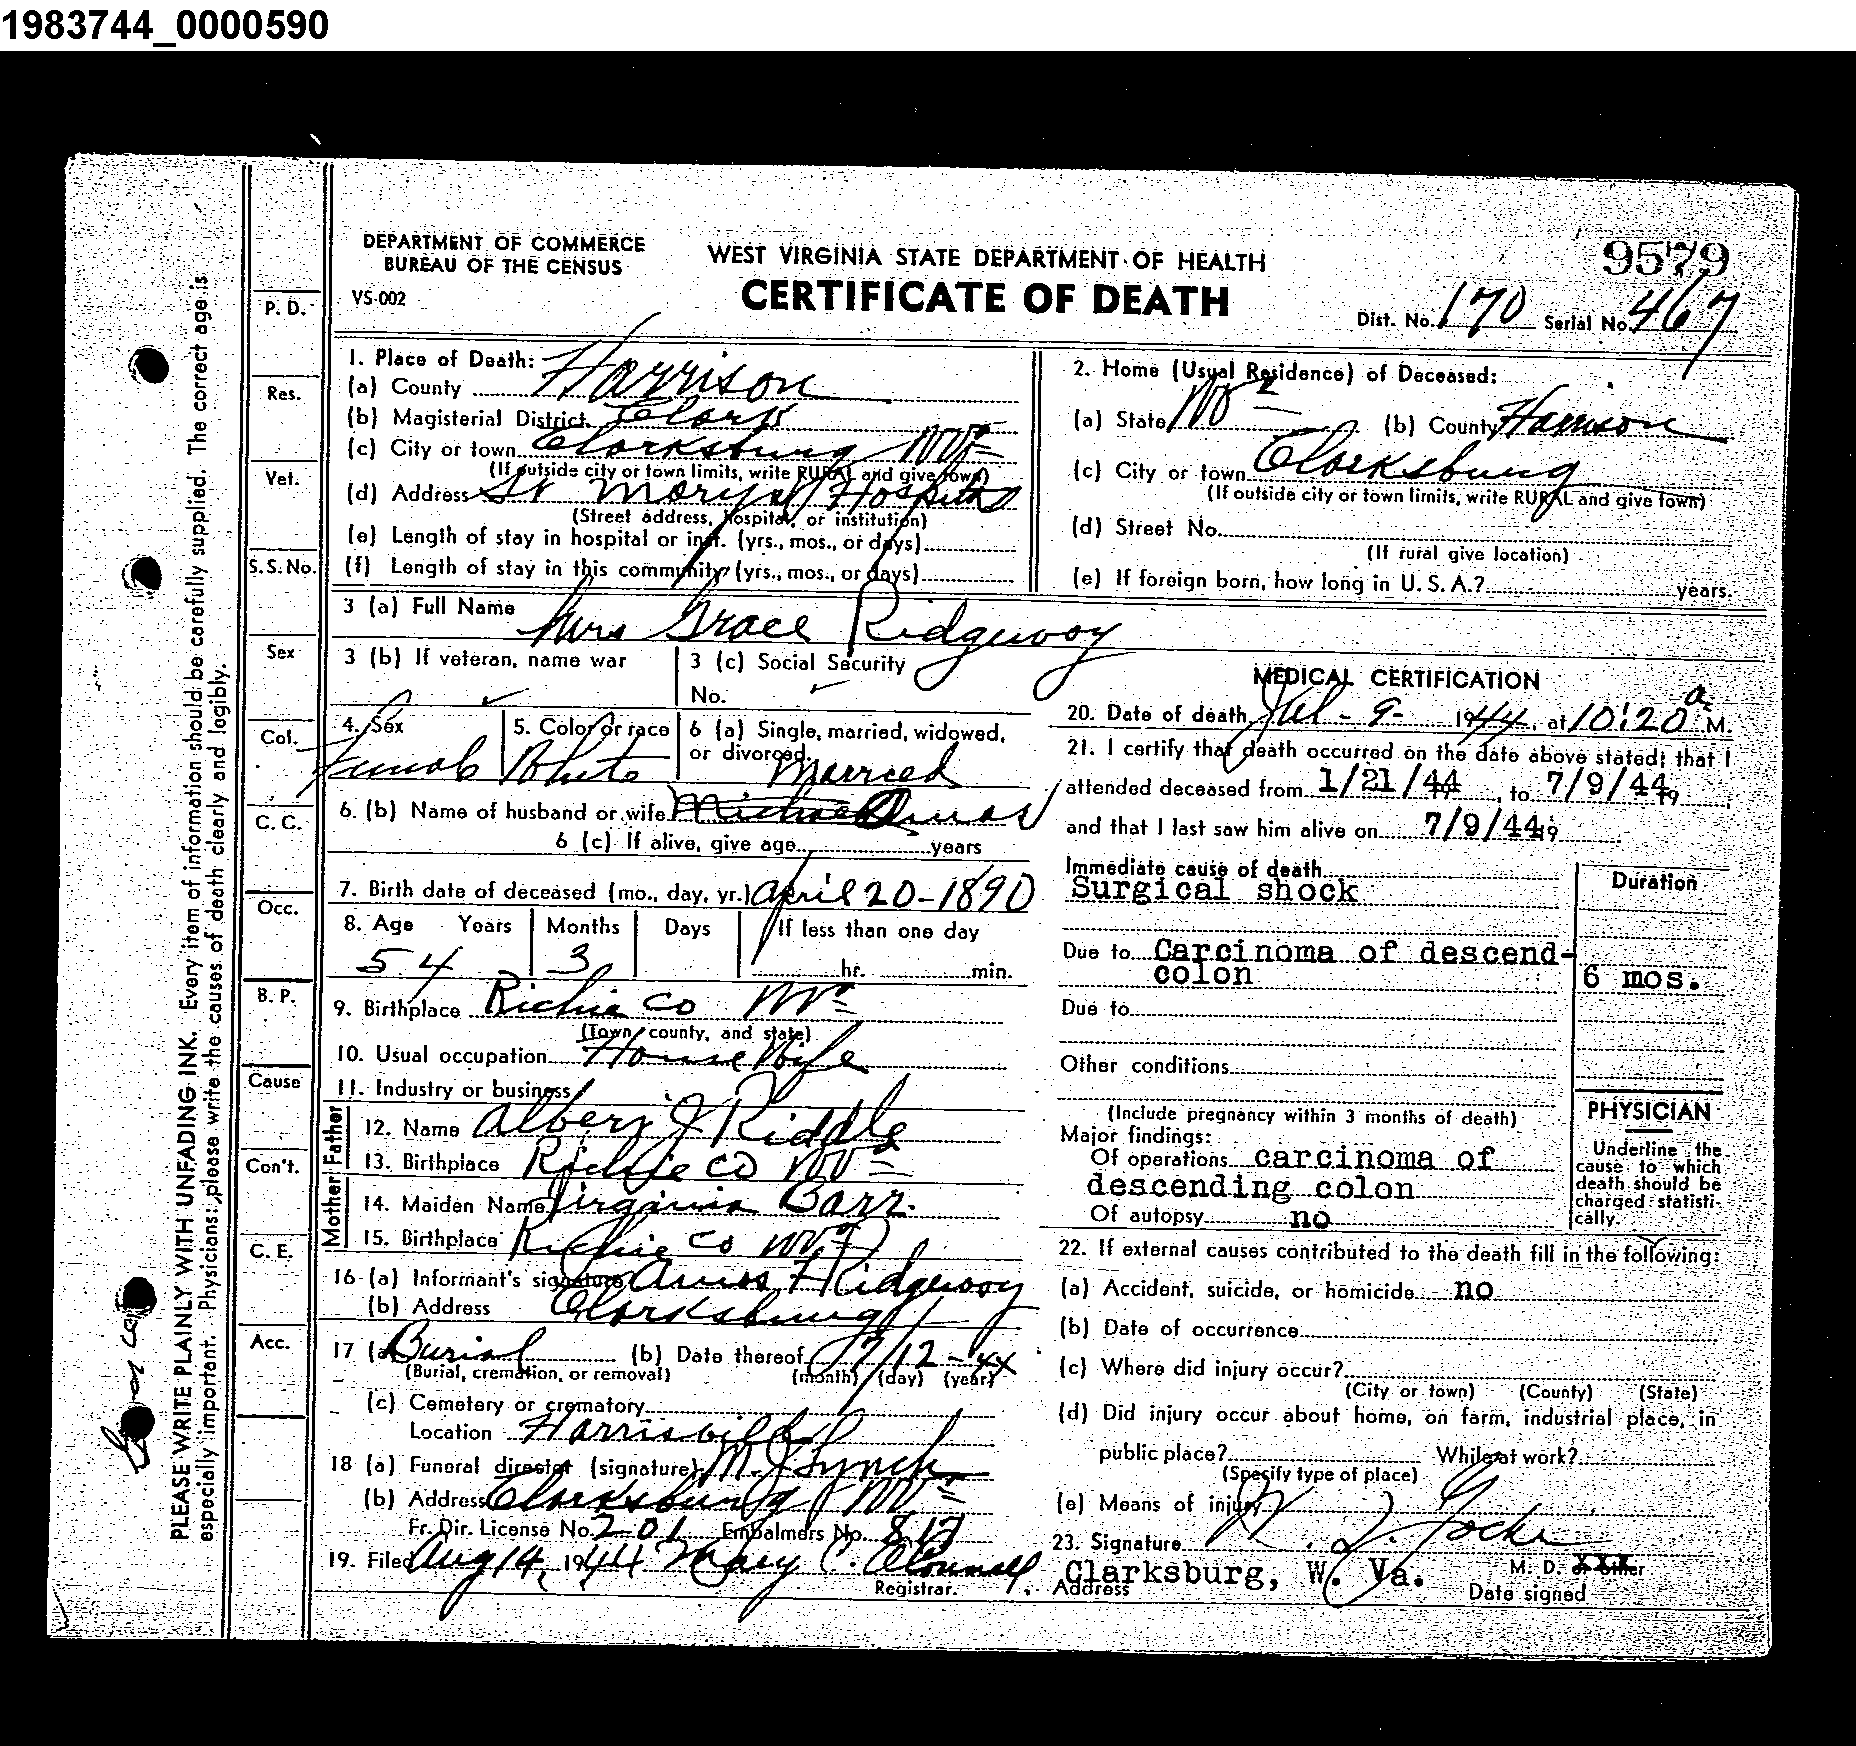 1983744_0000590
DEPARTMENT OF COMMERCE
BUREAU OF THE CENSUS
VS-002
WEST VIRGINIA STATE DEPARTMENT OF HEALTH
CERTIFICATE OF DEATH
9579
Dist. No. 170 Serial No. 467
PLEASE WRITE PLAINLY WITH UNFADING INK. Every item of information should be carefully supplied. The correct age is
especially important. Physicians: please write the causes of death clearly and legibly.
P. D.
Res.
Vet.
S. S. No.
Sex
Col.
C. C.
Occ.
B. P.
Cause
Con't.
C. E.
Acc.
1. Place of Death:
(a) County Harrison
(b) Magisterial District Clark
(c) City or town Clarksburg WVa
(If outside city or town limits, write RURAL and give town)
(d) Address St Marys Hospital
(Street address, hospital, or institution)
(e) Length of stay in hospital or inst. (yrs., mos., or days)
(f) Length of stay in this community? (yrs., mos., or days)
2. Home (Usual Residence) of Deceased:
(a) State WVa (b) County Harrison
(c) City or town Clarksburg
(If outside city or town limits, write RURAL and give town)
(d) Street No.
(If rural give location)
(e) If foreign born, how long in U. S. A.? years.
3 (a) Full Name Mrs Grace Ridgeway
3 (b) If veteran, name war
3 (c) Social Security
No.
4. Sex Female
5. Color or race White
6 (a) Single, married, widowed,
or divorced. Married
6. (b) Name of husband or wife Amos
6 (c) If alive, give age years
7. Birth date of deceased (mo., day, yr.) April 20-1890
8. Age Years Months Days If less than one day
54 3 hr. min.
9. Birthplace Richie Co WVa
(Town, county, and state)
10. Usual occupation House Wife
11. Industry or business
Father
12. Name Albert J Riddle
13. Birthplace Richie Co WVa
Mother
14. Maiden Name Virginia Barr.
15. Birthplace Richie Co WVa
16 (a) Informant's signature Amos F Ridgeway
(b) Address Clarksburg
17 (a) Burial (b) Date thereof 7/12-44
(Burial, cremation, or removal) (month) (day) (year)
(c) Cemetery or crematory
Location Harrisville
18 (a) Funeral director (signature) M. J. Lynch
(b) Address Clarksburg WVa
Fr. Dir. License No. 201 Embalmers No. 812
19. Filed Aug 14, 1944 Mary C. O'Connell
Registrar.
MEDICAL CERTIFICATION
20. Date of death Jul-9- 1944, at 10:20 a. M.
21. I certify that death occurred on the date above stated; that I
attended deceased from 1/21/44, to 7/9/44, 19
and that I last saw him alive on 7/9/44, 19
Immediate cause of death
Surgical shock
Duration
Due to Carcinoma of descend-
colon 6 mos.
Due to
Other conditions
(Include pregnancy within 3 months of death)
Major findings:
Of operations carcinoma of
descending colon
Of autopsy no
PHYSICIAN
Underline the
cause to which
death should be
charged statisti-
cally.
22. If external causes contributed to the death fill in the following:
(a) Accident, suicide, or homicide no
(b) Date of occurrence
(c) Where did injury occur?
(City or town) (County) (State)
(d) Did injury occur about home, on farm, industrial place, in
public place? While at work?
(Specify type of place)
(e) Means of injury
23. Signature
M. D. or other
Address Clarksburg, W. Va.
Date signed